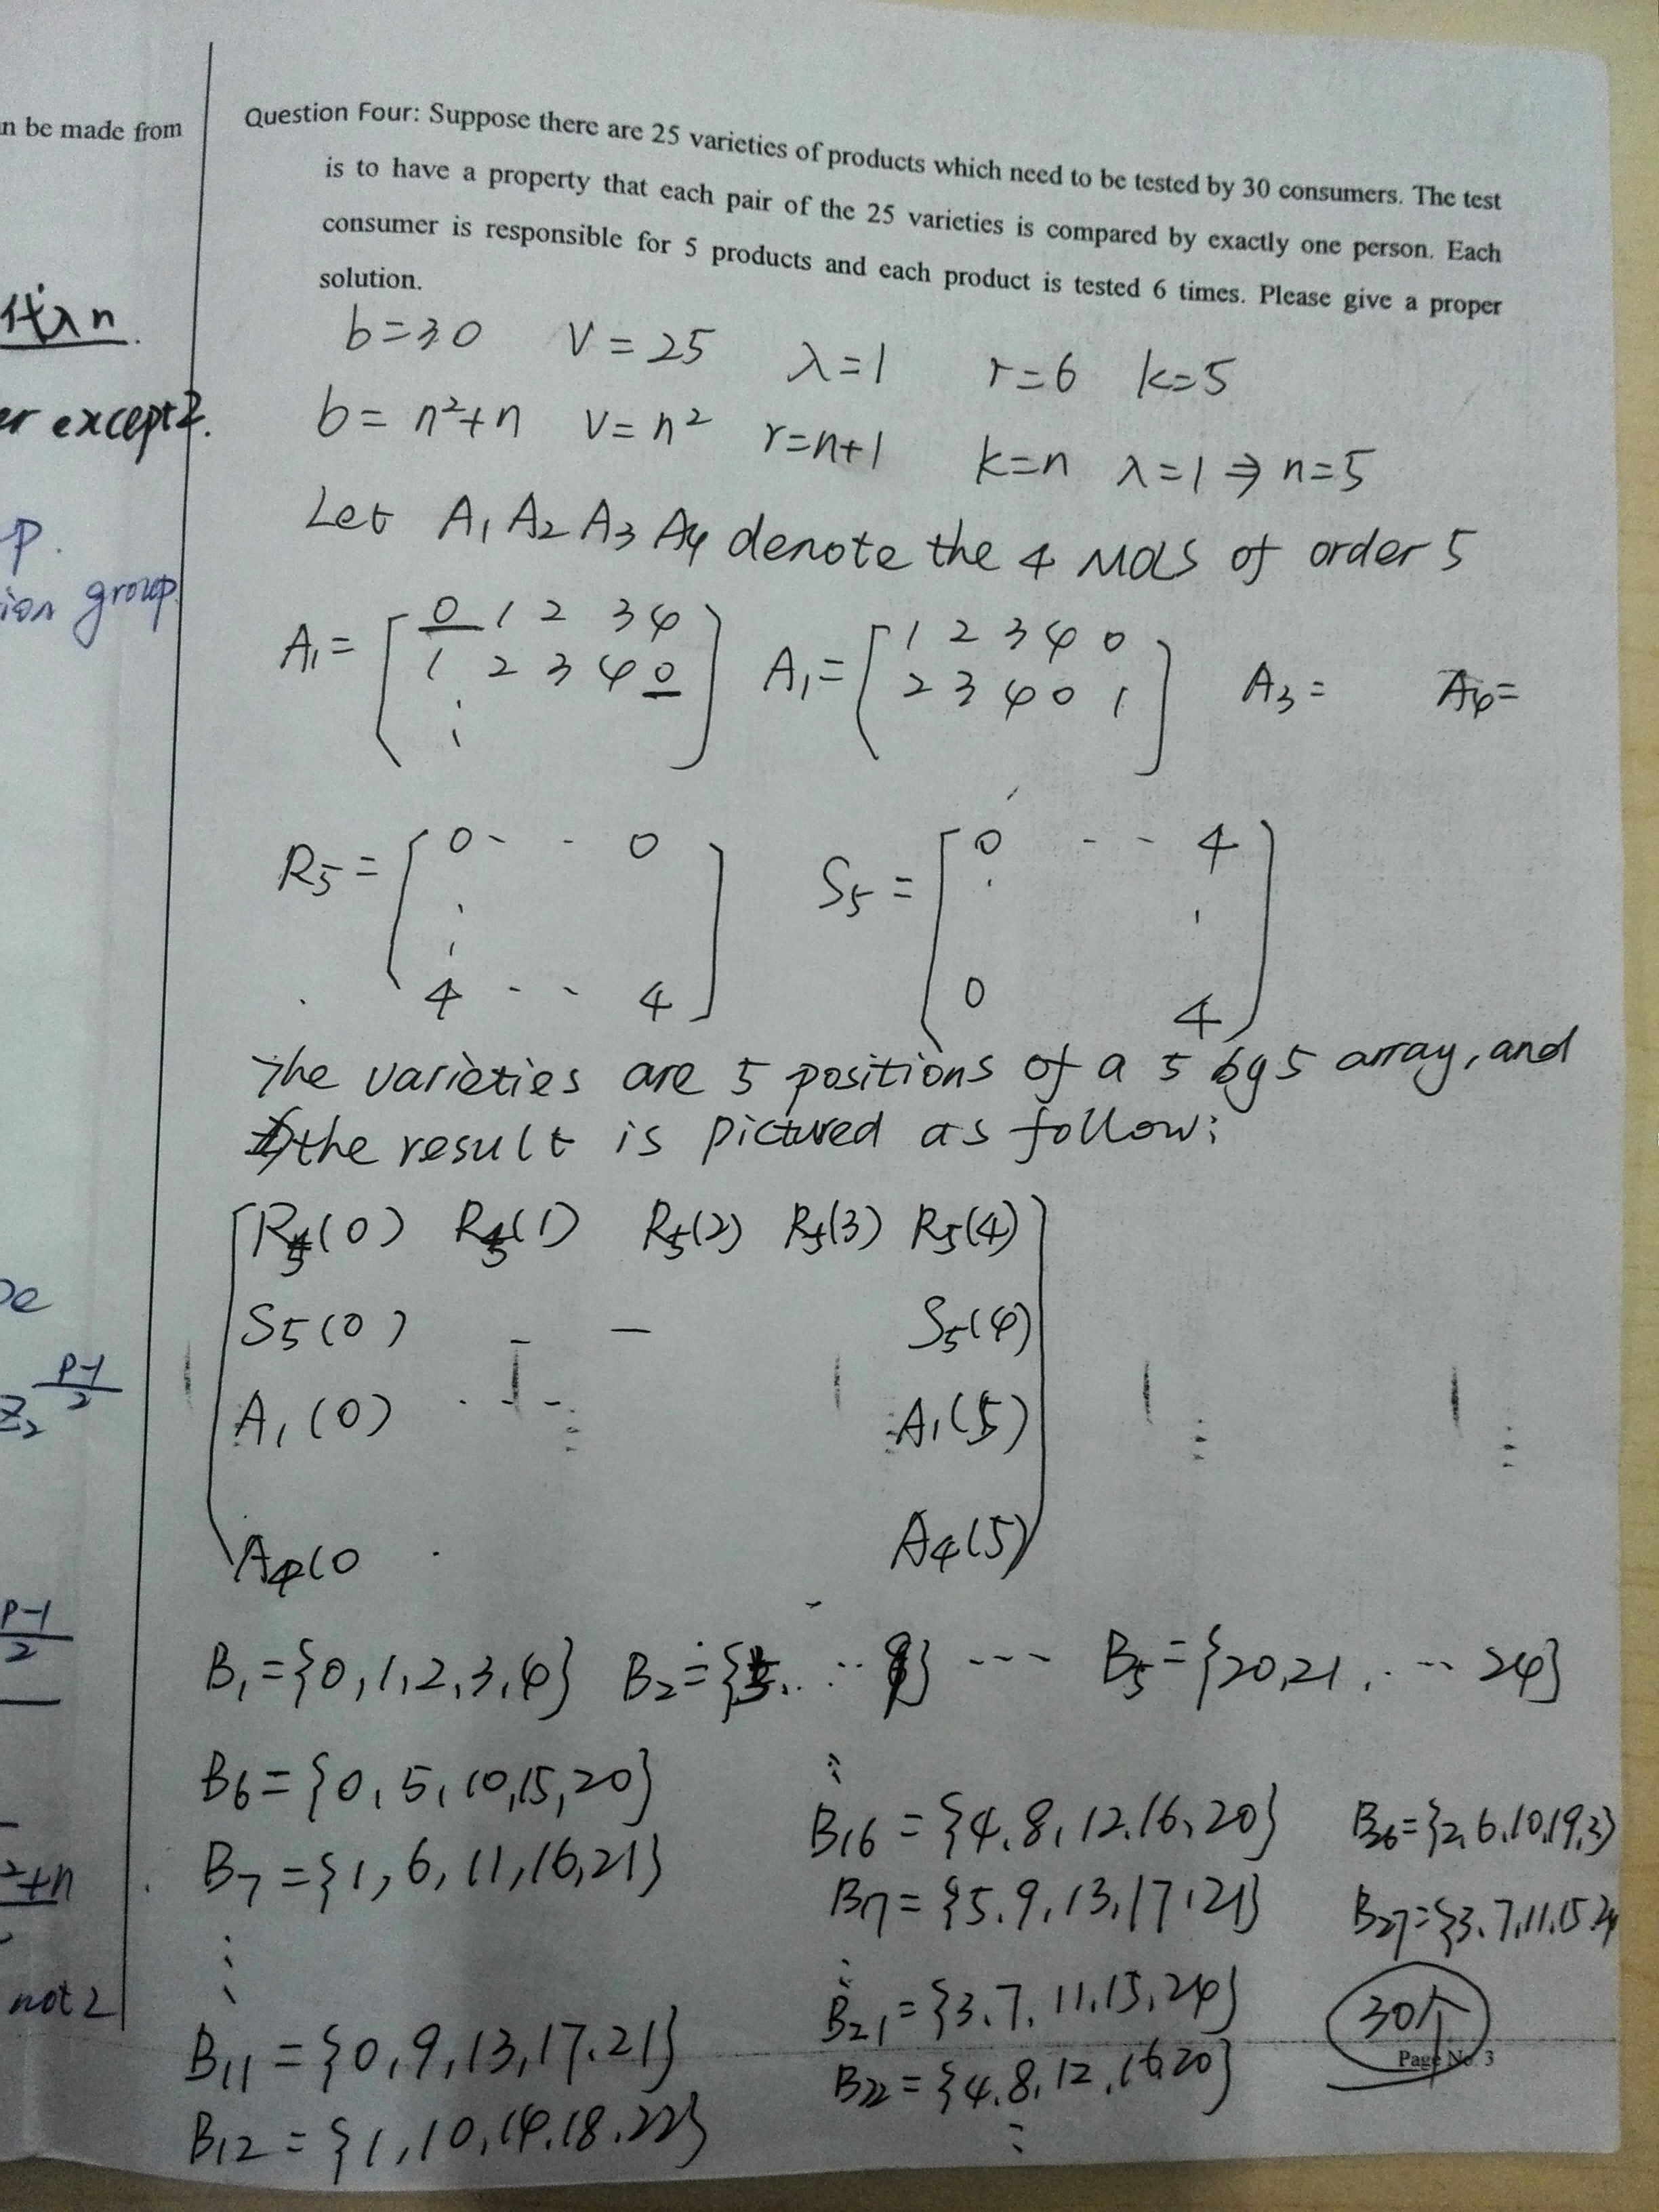 n be made from
代入n
er except 2.
P.
ion group
be
Z₂ P-1/2
P-1/2
²+n
not 2
Question Four: Suppose there are 25 varieties of products which need to be tested by 30 consumers. The test
is to have a property that each pair of the 25 varieties is compared by exactly one person. Each
consumer is responsible for 5 products and each product is tested 6 times. Please give a proper
solution.
b=30 V=25 λ=1 r=6 k=5
b=n²+n V=n² r=n+1 k=n λ=1 ⇒ n=5
Let A₁ A₂ A₃ A₄ denote the 4 MOLS of order 5
A₁= [0 1 2 3 4 A₁= [1 2 3 4 0 A₃= A₄=
1 2 3 4 0] 2 3 4 0 1]
⋮
R₅= [0 - - 0 S₅= [0 - - 4
4 - - 4] 0 4]
The varieties are 5 positions of a 5 by 5 array, and
the result is pictured as follow:
R₅(0) R₅(1) R₅(2) R₅(3) R₅(4)
S₅(0) - - S₅(4)
A₁(0) . - - A₁(5)
A₄(0 . A₄(5)
B₁={0,1,2,3,4} B₂={5... 9} --- B₅={20,21,... 24}
B₆={0,5,10,15,20}
B₇={1,6,11,16,21}
⋮
B₁₁={0,9,13,17,21}
B₁₂={1,10,14,18,22}
⋮
B₁₆={4,8,12,16,20}
B₁₇={5,9,13,17,21}
⋮
B₂₁={3,7,11,15,24}
B₂₂={4,8,12,16,20}
⋮
B₂₆={2,6,10,19,3}
B₂₇={3,7,11,15
30个
Page No. 3